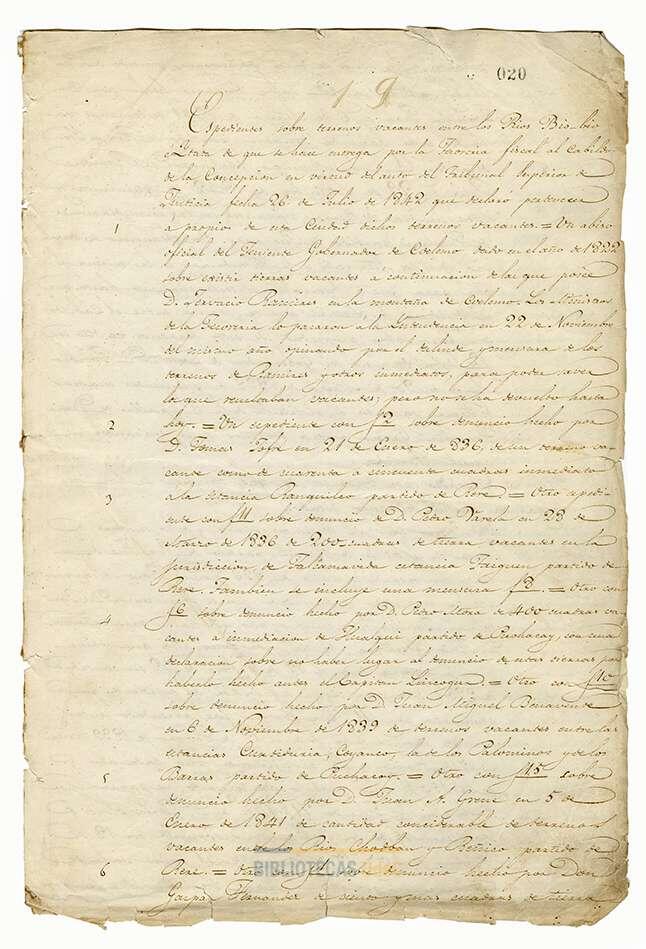 020
19
Espedientes sobre terrenos vacantes entre los Rios Bio-bio
é Itata de que se hace entrega por la Tesoreria fiscal al Cabildo
de la Concepcion en virtud del auto del Tribunal Superior de
Justicia fecha 26 de Julio de 1842 que declaró pertenecer
1 á propios de esta Ciudad dichos terrenos vacantes. = Un abiso
oficial del Teniente Gobernador de Coelemo dado en el año de 1822
sobre existir tierras vacantes á continuacion de las que posee
D. Servacio Ramires en la montaña de Coelemo. Los Ministros
de la Tesoreria lo pasaron á la Intendencia en 22 de Noviembre
del mismo año opinando por el deslinde y mensura de los
terrenos de Ramires y otros inmediatos, para poder saver
lo que resultaban vacantes; pero no se ha devuelto hasta
2 hoy. = Un espediente con f 2 sobre denuncio hecho por
D. Tomas Jofré en 21 de Enero de 836, de un terreno va-
cante como de cuarenta a cincuenta cuadras inmediato
3 a la estancia Ranquilco partido de Rere. = Otro espedi-
ente con f 11 sobre denuncio de D. Pedro Varela en 23 de
Marzo de 1836 de 200 cuadras de tierra vacantes en la
jurisdiccion de Talcamavida estancia partido de
Rere. Tambien se incluye una mensura f 3. = Otro con
4 f 6 sobre denuncio hecho por D. Pedro Mora de 400 cuadras va-
cantes a inmediacion de Hualqui partido de Puchacay, con una
declaracion sobre no haber lugar al denuncio de estas tierras por
haberlo hecho antes el Capitan = Otro con f 10
sobre denuncio hecho por D Juan Miguel Benavente
en 6 de Noviembre de 1839 de terrenos vacantes entre las
estancias Curtiduria, Coyanco, la de los Palominos y de los
5 Barras partido de Puchacay. = Otro con f 15 sobre
denuncio hecho por D. Juan A. en 5 de
Enero de 1841 de cantidad considerable de terrenos
vacantes entre los Rios y partido de
6 Rere. = Otro con sobre denuncio hecho por Don
Gaspar Fernandez de ciento y mas cuadras de tierra
BIBLIOTECAS